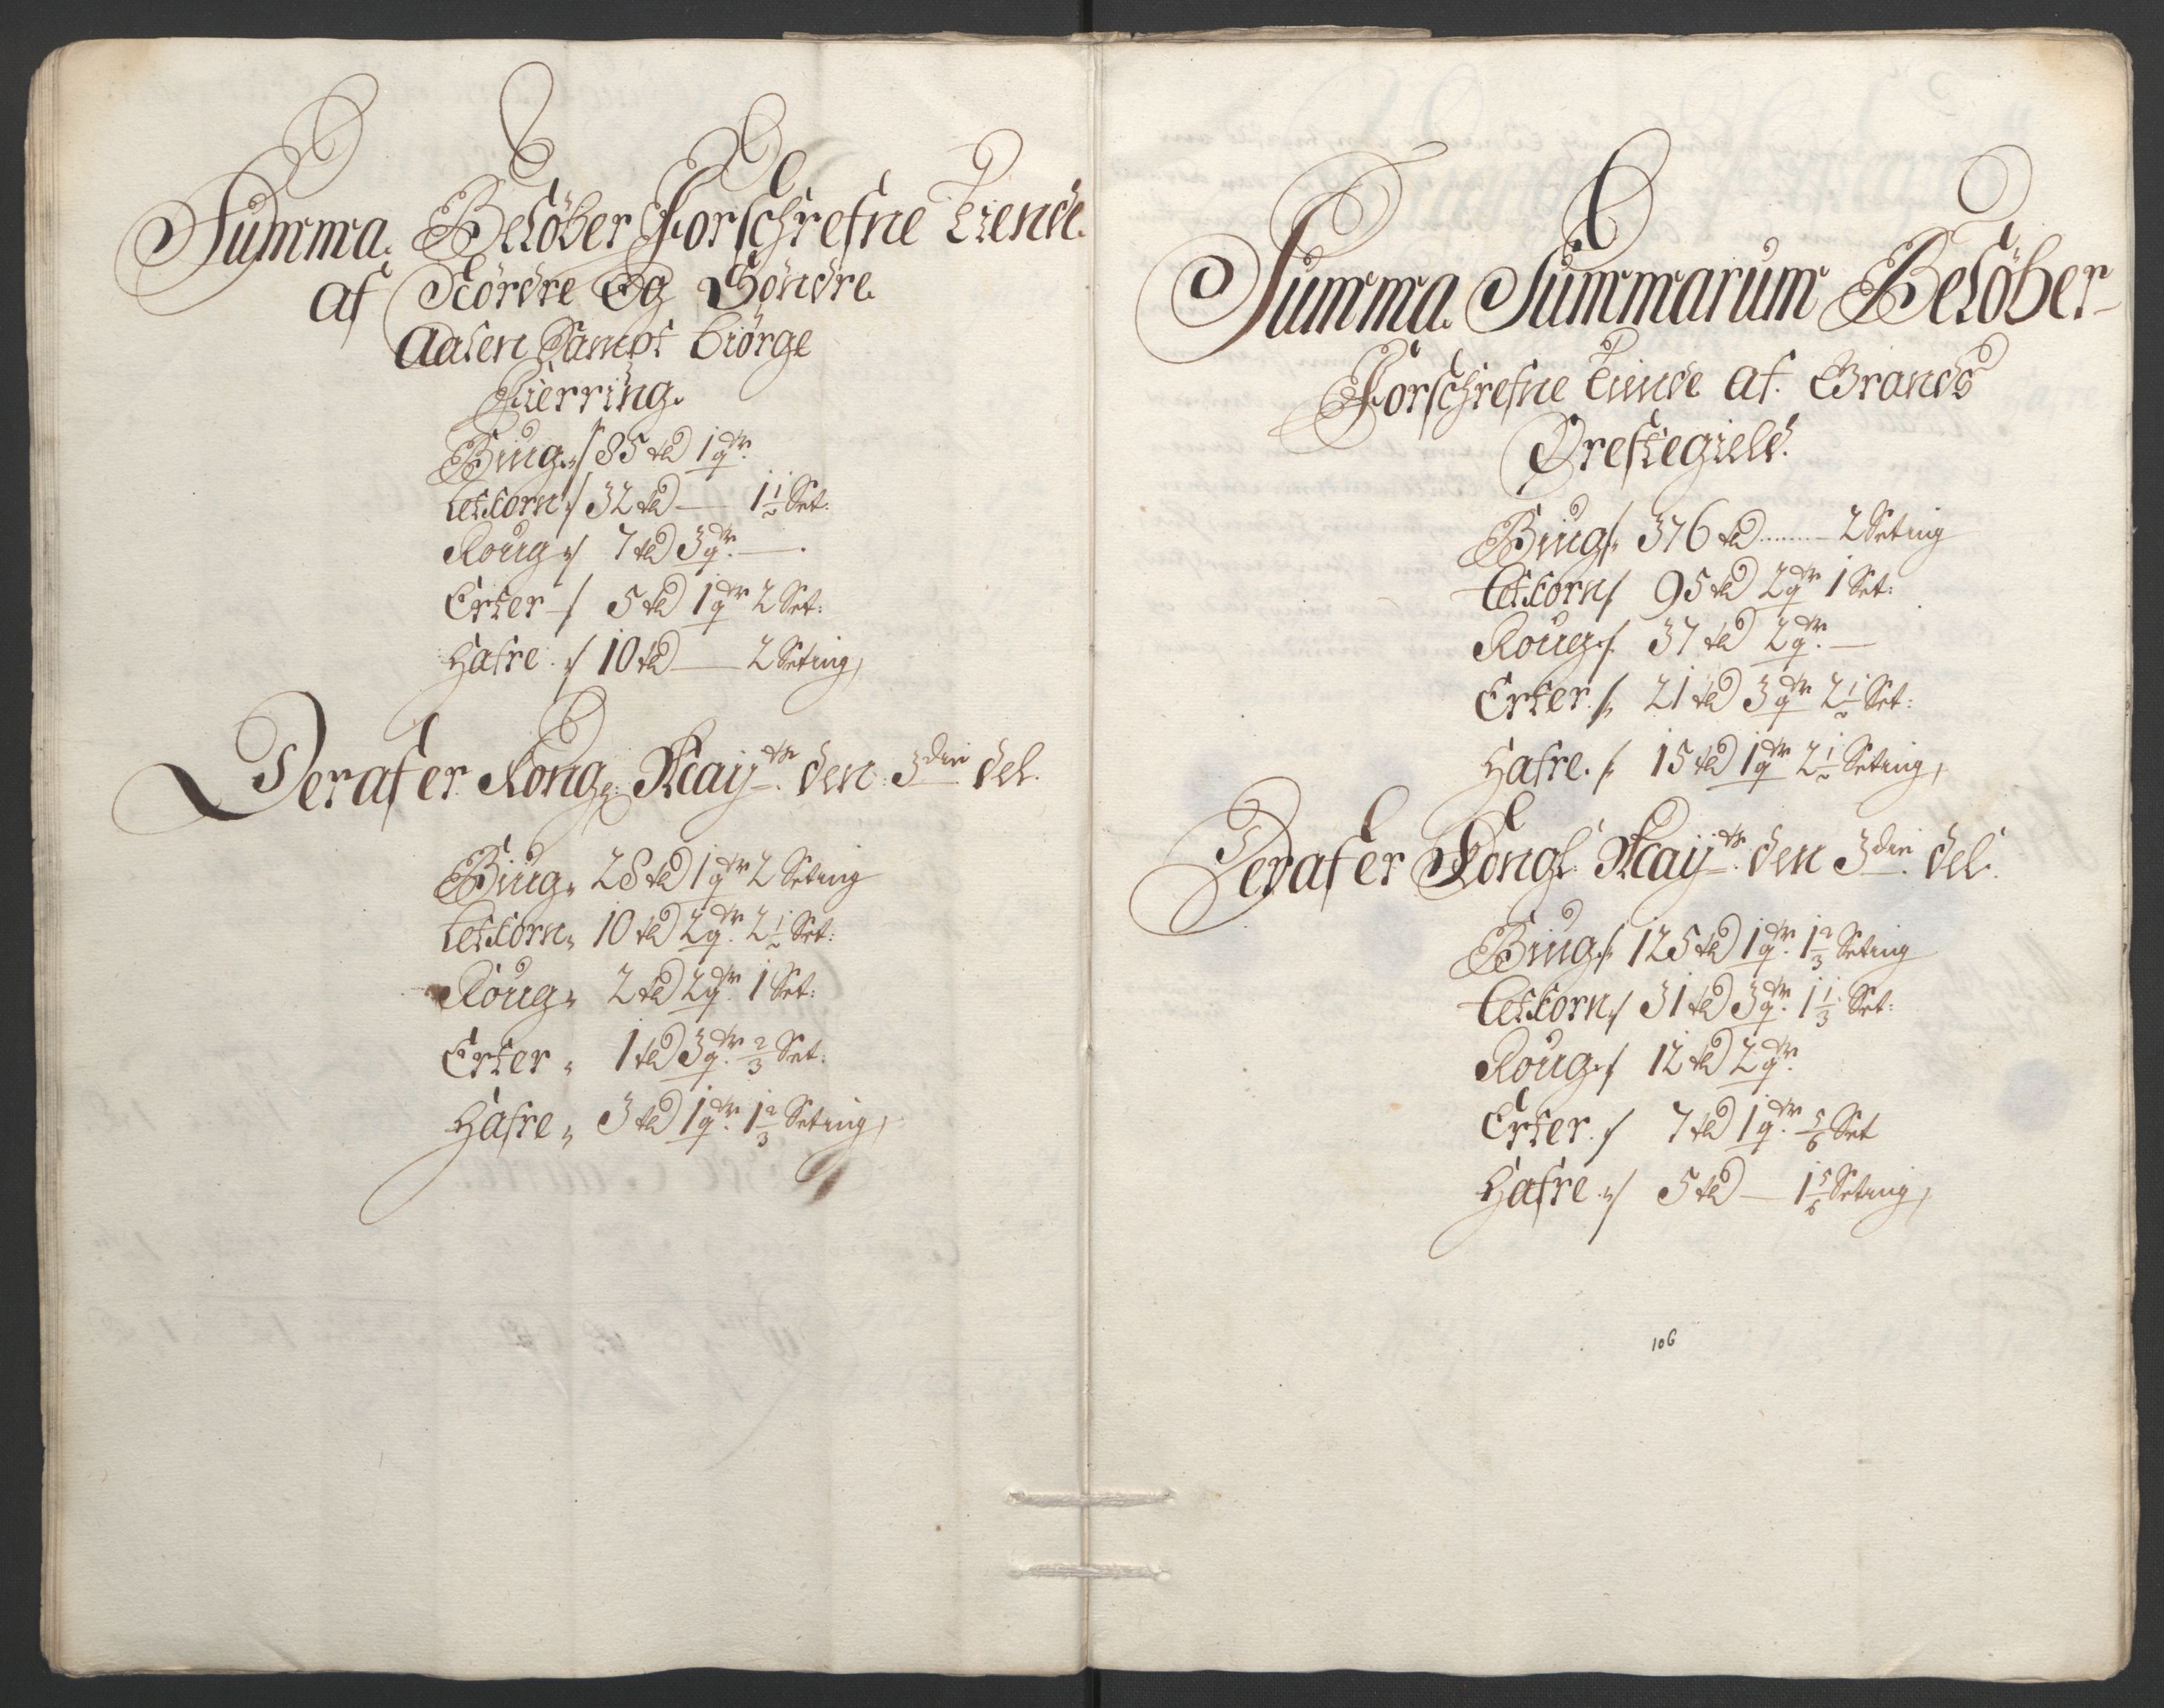 Summa Belöber Forschrefne Tiende
af Nördre Og Söndre
Aalen Sampt Biörge
Fierring.
Biug 85 td 1 qtr
Letkorn 32 td — 1½ Set:
Roug 7 td 3 qtr —
Erter 5 td 1 qtr 2 Set:
Hafre 10 td — 2 Seting
Deraf er Kong: Mayts den 3die del.
Biug 28 td 1 qtr 2 Seting
Letkorn 10 td 2 qtr 2½ Set:
Roug 2 td 2 qtr 1 Set:
Erter 1 td 3 qtr ⅔ Set:
Hafre 3 td 1 qtr 1⅔ Seting
Summa Summarum Belöber
Forschrefne Tiende af Grands
Prestegield.
Biug 376 td ........ 2 Seting
Letkorn 95 td 2 qtr 1 Set:
Roug 37 td 2 qtr —
Erter 21 td 3 qtr 2½ Set:
Hafre 15 td 1 qtr 2½ Seting
Deraf er Kongl Mayts den 3die del.
Biug 125 td 1 qtr 1⅔ Seting
Letkorn 31 td 3 qtr 1⅓ Set:
Roug 12 td 2 qtr
Erter 7 td 1 qtr ⅚ Set
Hafre 5 td — 1⅚ Seting
106